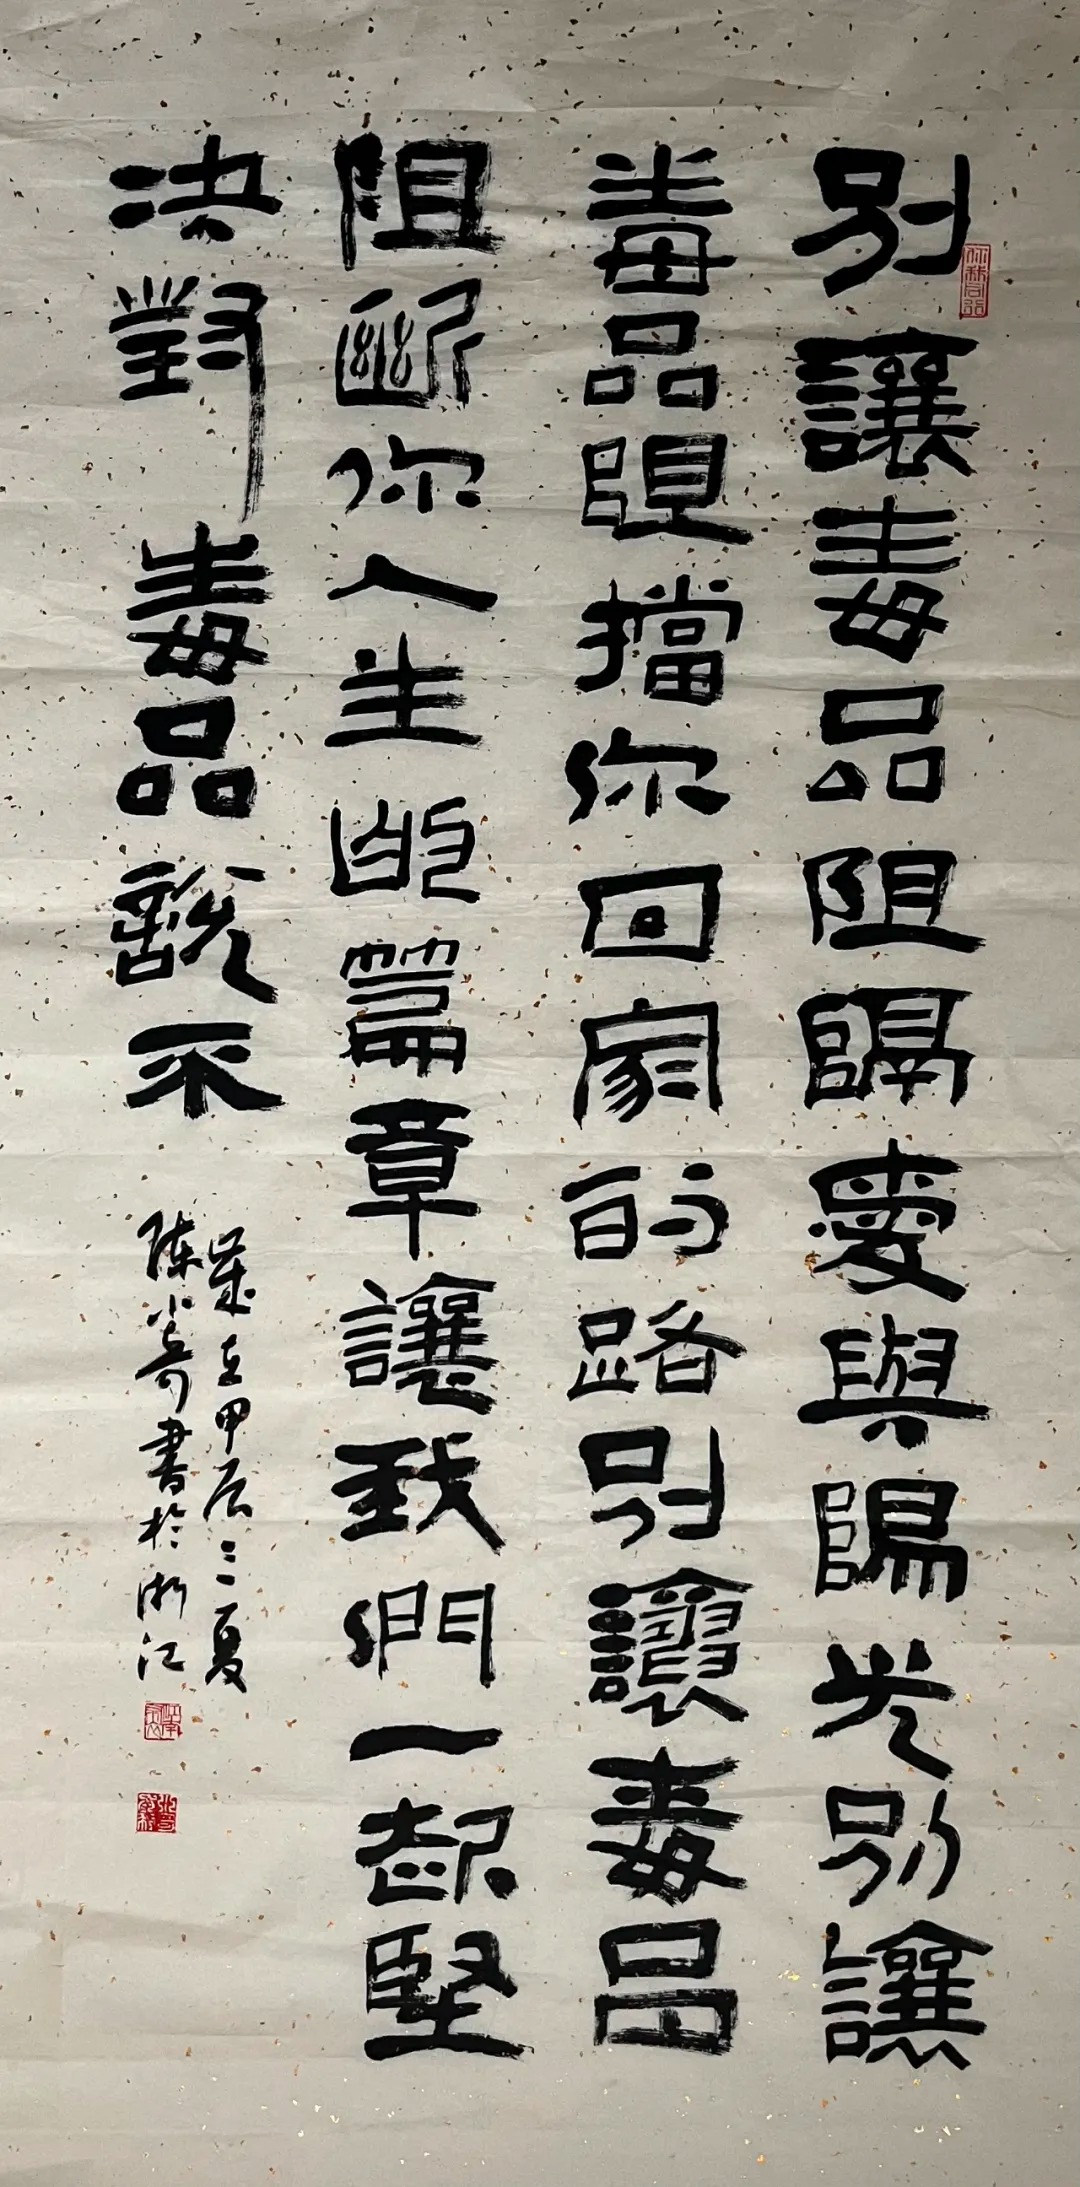 别讓毒品阻隔愛與陽光别讓
毒品阻擋你回家的路别讓毒品
阻斷你人生的篇章讓我們一起堅
决對毒品説不
歲在甲辰之夏
陳小奇書於浙江